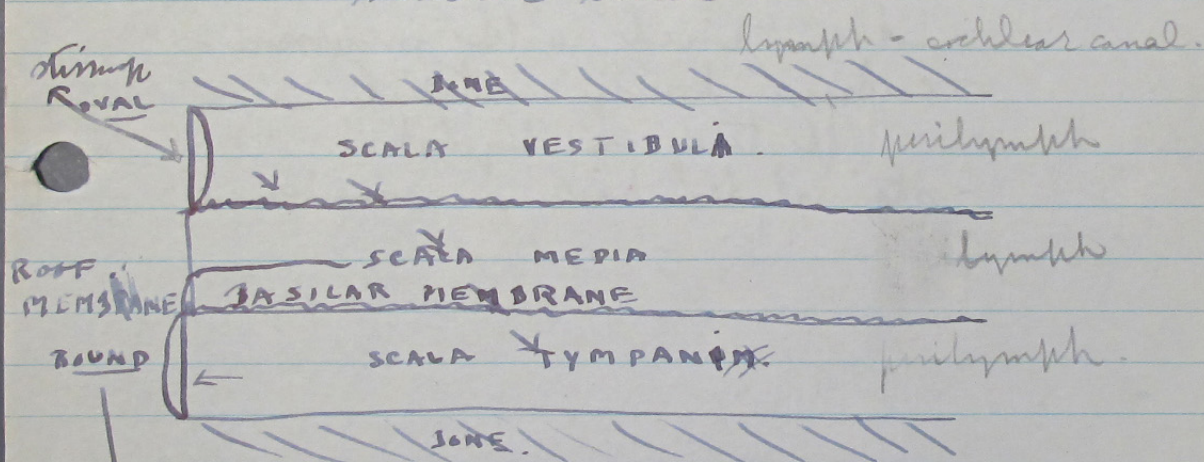 lymph - cochlear canal.
stirrup
OVAL
BONE
SCALA VESTIBULI.
perilymph
SCALA MEDIA
lymph
ROOF
MEMBRANE
BASILAR MEMBRANE
ROUND
SCALA TYMPANI
perilymph.
BONE.